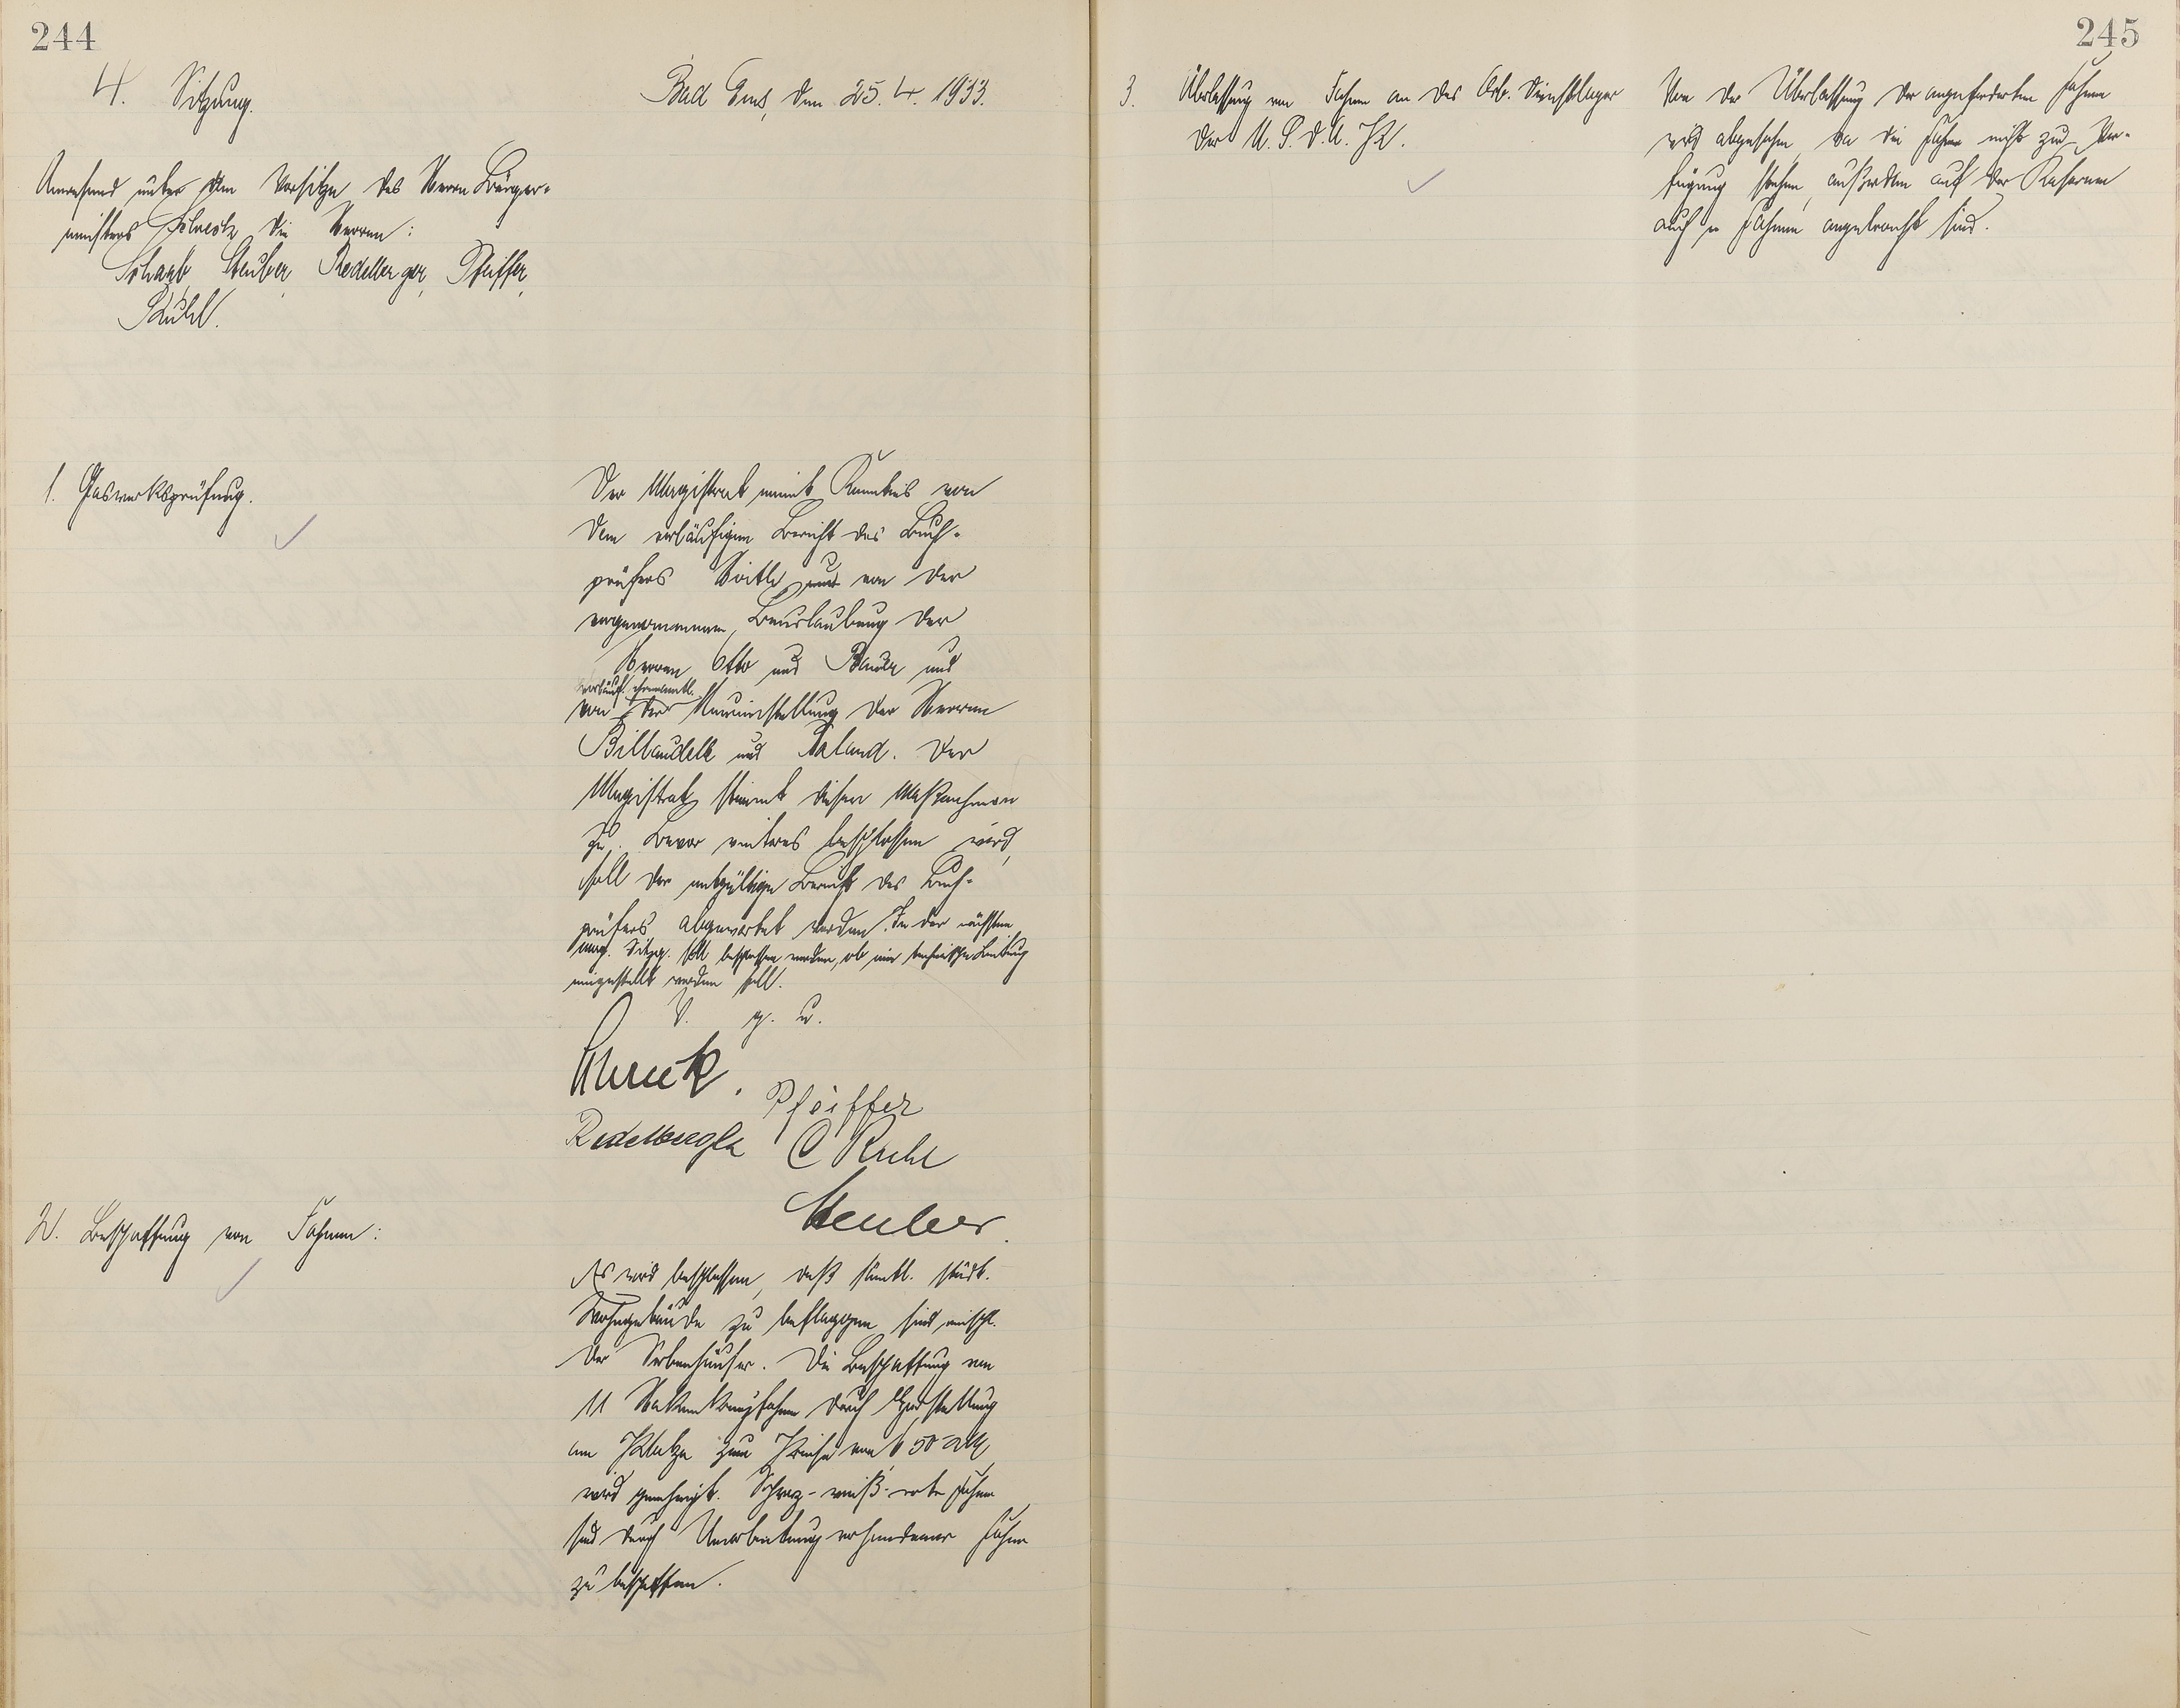 244
4. Sitzung.
Bad Ems, den 25. 4. 1933.
Anwesend unter dem Vorsitze des Herrn Bürger-
meisters die Herren:
Schaab, Steuber, Redelberger, Pfeiffer,
Rühl.
1. Gaswerksprüfung.
Der Magistrat nimmt Kenntnis von
dem vorläufigen Bericht des Buch-
prüfers und von der
vorgenommenen Beurlaubung der
Herren Otto und und
vorläuf. ehrenamtl.
von der Neueinstellung der Herren
Billaudelle und Kaland. Der
Magistrat stimmt diesen Maßnahmen
zu. Bevor weiteres beschlossen wird,
soll der entgültige Bericht des Buch-
prüfers abgewartet werden. In der nächsten
Mag. Sitzg. soll beschlossen werden, ob eine technische Leitung
eingestellt werden soll.
V. g. u.
Schreck.
Pfeiffer
Redelberger
C Ruhl
Steuber.
2. Beschaffung von Fahnen:
Es wird beschlossen, daß sämtl. städt.
Wohngebäude zu beflaggen sind einschl.
der Serbenhäuser. Die Beschaffung von
11 Hakenkreuzfahnen durch Herstellung
am Platze zum Preise von 50 RM
wird genehmigt. Schwarz-weiß-rote Fahnen
sind durch Umarbeitung vorhandener Fahnen
zu beschaffen.
245
3. Überlassung von Fahnen an das Arb. Dienstlager
der N. S. D. A. P.
Von der Überlassung der angeforderten Fahnen
wird abgesehen, da die Fahnen nicht zur Ver-
fügung stehen, außerdem auf der Kaserne
auch Fahnen angebracht sind.